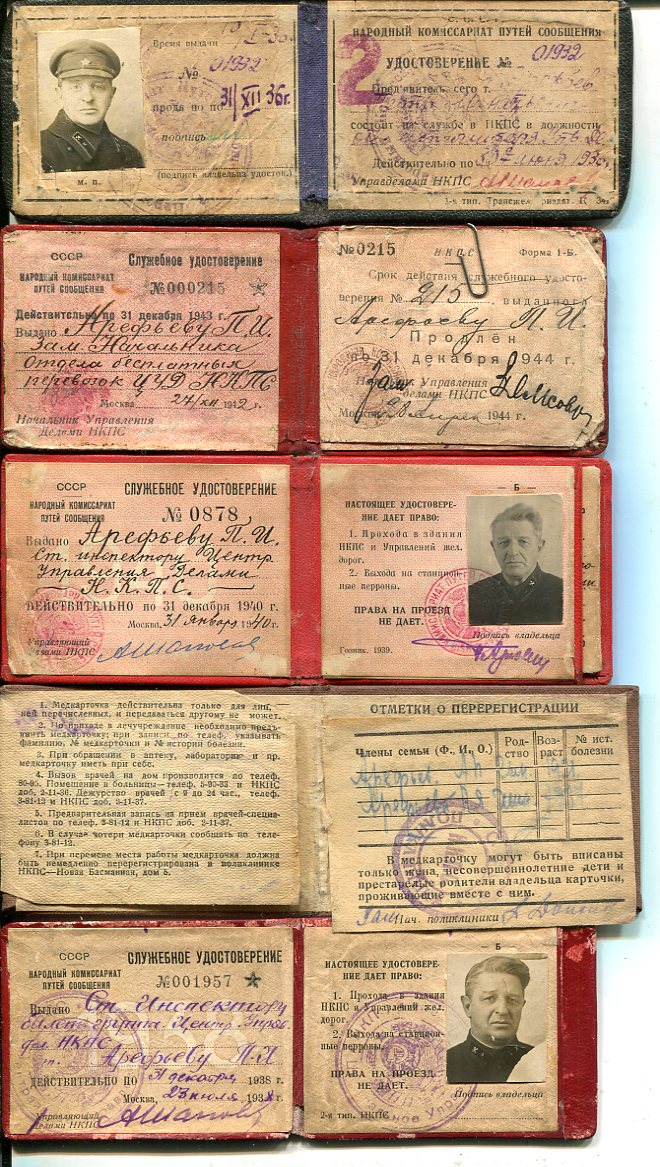 Время выдачи
№ 01932
31/XII 36г.
подпись
(подпись владельца удостов.)
М. П.
С. С. С. Р.
НАРОДНЫЙ КОМИССАРИАТ ПУТЕЙ СООБЩЕНИЯ
2
УДОСТОВЕРЕНИЕ № 01932
Предъявитель сего т.
состоит на службе в НКПС в должности
Действительно по
Управделами НКПС
СССР
НАРОДНЫЙ КОМИССАРИАТ
ПУТЕЙ СООБЩЕНИЯ
Служебное удостоверение
№000215
Действительно по 31 декабря 1943 г.
Выдано Арефьеву П. И.
Зам. Начальника
Отдела бесплатных
перевозок ЦУД НКПС
Москва 27/XII 1942 г.
Начальник Управления
Делами НКПС
№0215 НКПС Форма 1-Б.
Срок действия служебного удосто-
верения № 215, выданного
Арефьеву П. И.
Продлён
по 31 декабря 1944 г.
Зам. Начальник Управления
делами НКПС
Москва 1944 г.
СССР
НАРОДНЫЙ КОМИССАРИАТ
ПУТЕЙ СООБЩЕНИЯ
СЛУЖЕБНОЕ УДОСТОВЕРЕНИЕ
№ 0878
Выдано Арефьеву П. И.
Ст. инспектору Центр
Управления Делами
Н.К.П.С.
ДЕЙСТВИТЕЛЬНО по 31 декабря 1940 г.
Москва, 31 Января 1940г.
Управляющий
делами НКПС
— Б —
НАСТОЯЩЕЕ УДОСТОВЕРЕ-
НИЕ ДАЕТ ПРАВО:
1. Прохода в здания
НКПС и Управлений жел.
дорог.
2. Выхода на станцион-
ные перроны.
ПРАВА НА ПРОЕЗД
НЕ ДАЕТ.
Гознак. 1939.
Подпись владельца
1. Медкарточка действительна только для лиц,
ней перечисленных, и передаваться другому не может.
2. По приходе в лечучреждение необходимо предъ-
явить медкарточку; при записи по телеф. указывать
фамилию, № медкарточки и № истории болезни.
3. При обращении в аптеку, лабораторию и пр.
медкарточку иметь при себе.
4. Вызов врачей на дом производится по телеф.
80-95. Помещение в больницы—телеф. 5-93-33 и НКПС
доб. 2-11-36. Дежурство врачей с 9 до 24 час., телеф.
3-81-12 и НКПС доб. 2-11-37.
5. Предварительная запись на прием врачей-специа-
листов по телеф. 5-81-12 и НКПС доб. 2-11-37.
6. В случае потери медкарточки сообщать по теле-
фону 5-81-12.
7. При перемене места работы медкарточка должна
быть немедленно перерегистрирована в поликлинике
НКПС—Новая Басманная, дом 5.
ОТМЕТКИ О ПЕРЕРЕГИСТРАЦИИ
Члены семьи (Ф., И., О.)
Род-
ство
Воз-
раст
№ ист.
болезни
В медкарточку могут быть вписаны
только жена, несовершеннолетние дети и
престарелые родители владельца карточки,
проживающие вместе с ним.
Нач. поликлиники
СССР
НАРОДНЫЙ КОМИССАРИАТ
ПУТЕЙ СООБЩЕНИЯ
СЛУЖЕБНОЕ УДОСТОВЕРЕНИЕ
№001957
Выдано Ст. Инспектору
Арефьеву П. И.
ДЕЙСТВИТЕЛЬНО ПО 31 декабря 1938 г.
Москва, 23 июля 1938 г.
Управляющий
Делами НКПС
— Б
НАСТОЯЩЕЕ УДОСТОВЕРЕ-
НИЕ ДАЕТ ПРАВО:
1. Прохода в здания
НКПС и Управлений жел.
дорог.
2. Выхода на станцион-
ные перроны.
ПРАВА НА ПРОЕЗД
НЕ ДАЕТ.
2-я тип. НКПС
Подпись владельца